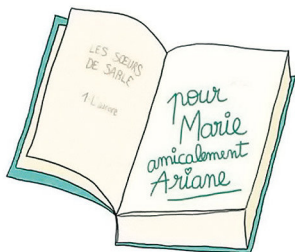 LES SŒURS
DE SABLE
pour
Marie
amicalement
Ariane